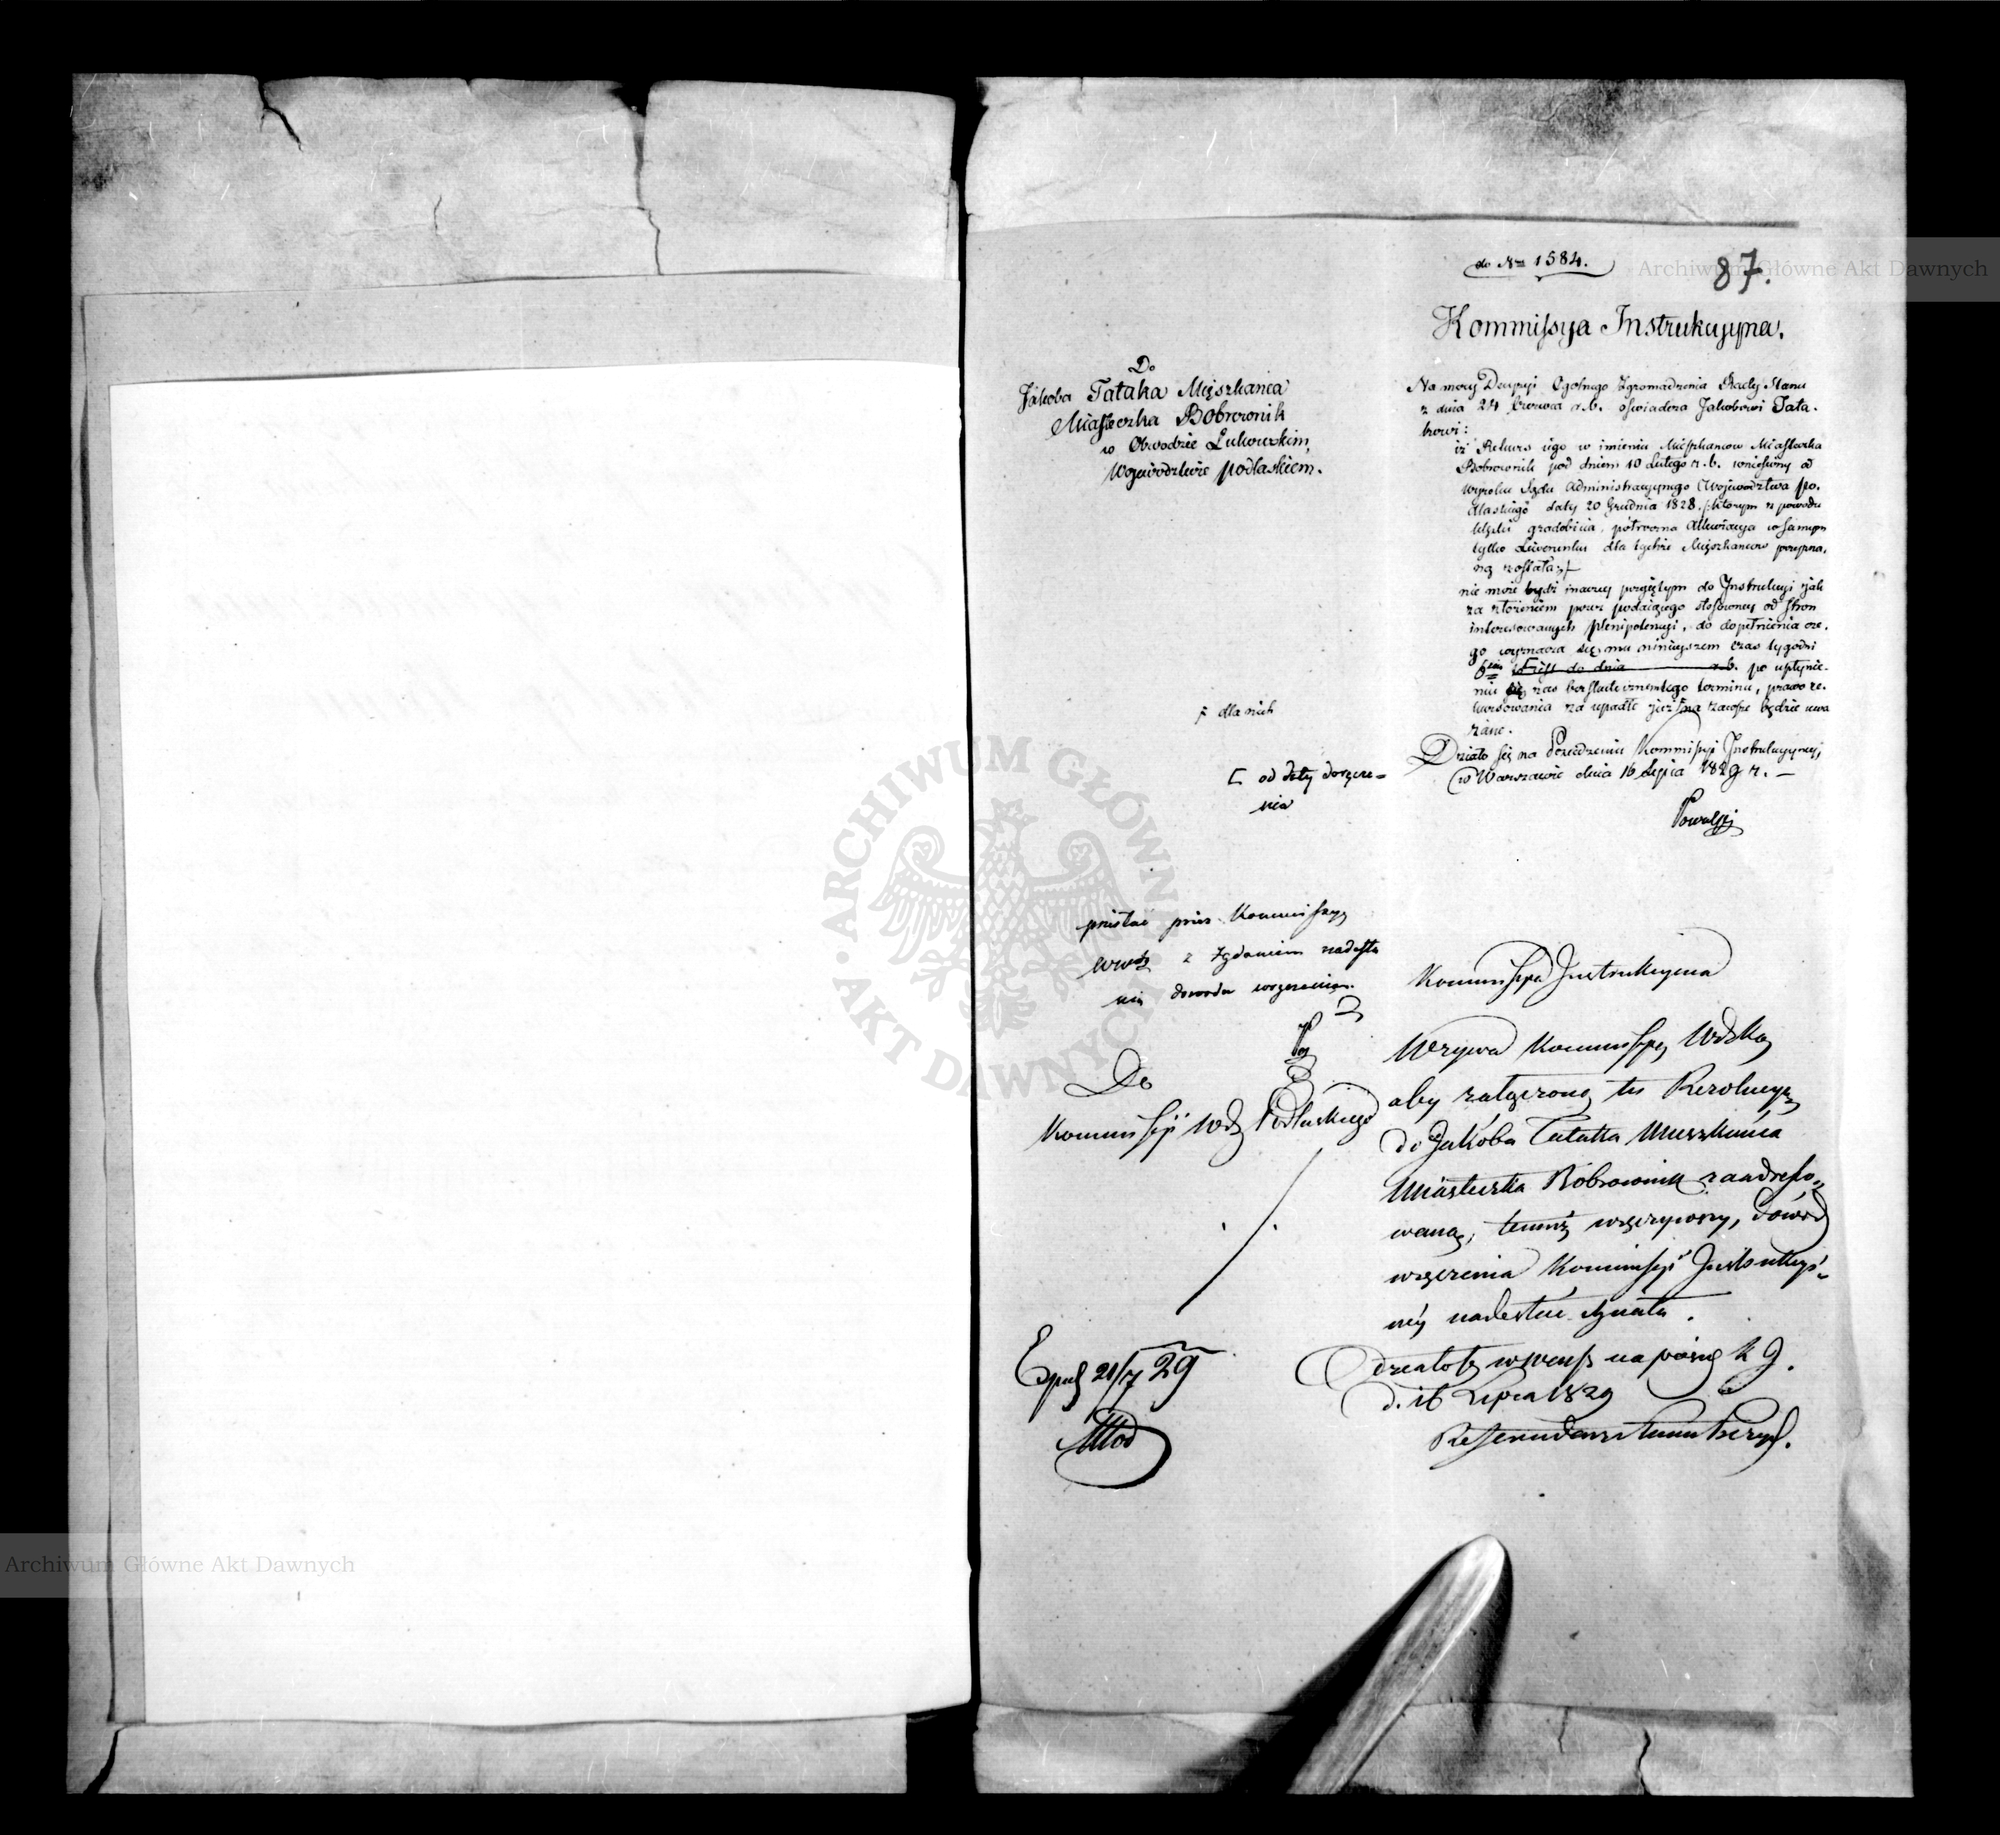 do Nru 1584.
87.
Kommissya Instrukcyjna.
Do
Jakóba Tataka Mięszkańca
Miasteczka Bobrownik
w Obwodzie Łukowskim,
Województwie podlaskiem.
Na mocy Decyzyi Ogólnego Zgromadzenia Rady Stanu
z dnia 24 Czerwca r. b. oświadcza Jakóbowi Tata-
kowi:
iż Rekurs iego w imieniu Mieszkancow Miasteczka
Bobrownik pod dniem 10 Lutego r. b. wniesiony od
wyroku Sądu Administracyjnego Województwa po-
dlaskiego daty 20 Grudnia 1828. /:którym z powodu
klęski gradobicia, półroczna allewiacya w samym
tylko Liwerunku dla tychże Mięszkancow przyzna-
ną została:/
nie może bydź inaczej przyiętym do Instrukcyi jak
za złożeniem przez podaiącego stosownej od stron
interesowanych plenipotencyi, do dopełnienia cze-
go wyznacza się mu niniejszem czas tygodni
6ciu to iest do dnia r. b. po upłynie-
niu zas bezskutecznem tego terminu, prawo re-
kursowania za upadłe już na zawsze będzie uwa
żane.
Działo się na Posiedzeniu Kommissyi Instrukcyjnej,
w Warszawie dnia 16 Lipca 1829 r. —
dla nich
[ od daty doręcze=
nia
przesłać przez Kommissyą
Wdz z żądaniem nadesła
nia dowodu wręczenia.
Do
Kommissyi Wdz Podlaskiego
Kommissya Instrukcyina
Wzywa Kommissyą Wdzką
aby załączoną tu Rezolucyą
do Jakóba Tataka Mieszkańca
Miasteczka Bobrownik zaadresso-
waną, temuż wręczywszy, dowód
wręczenia Kommissyi Instrukcyi-
néy nadesłać chciała.
Działo się w Warsz na posied K J.
d. 16 Lipca 1829
Referendarz Stanu
Exped 21/7 29
Archiwum Główne Akt Dawnych
ARCHIWUM GŁÓWNE AKT DAWNYCH
Archiwum Główne Akt Dawnych